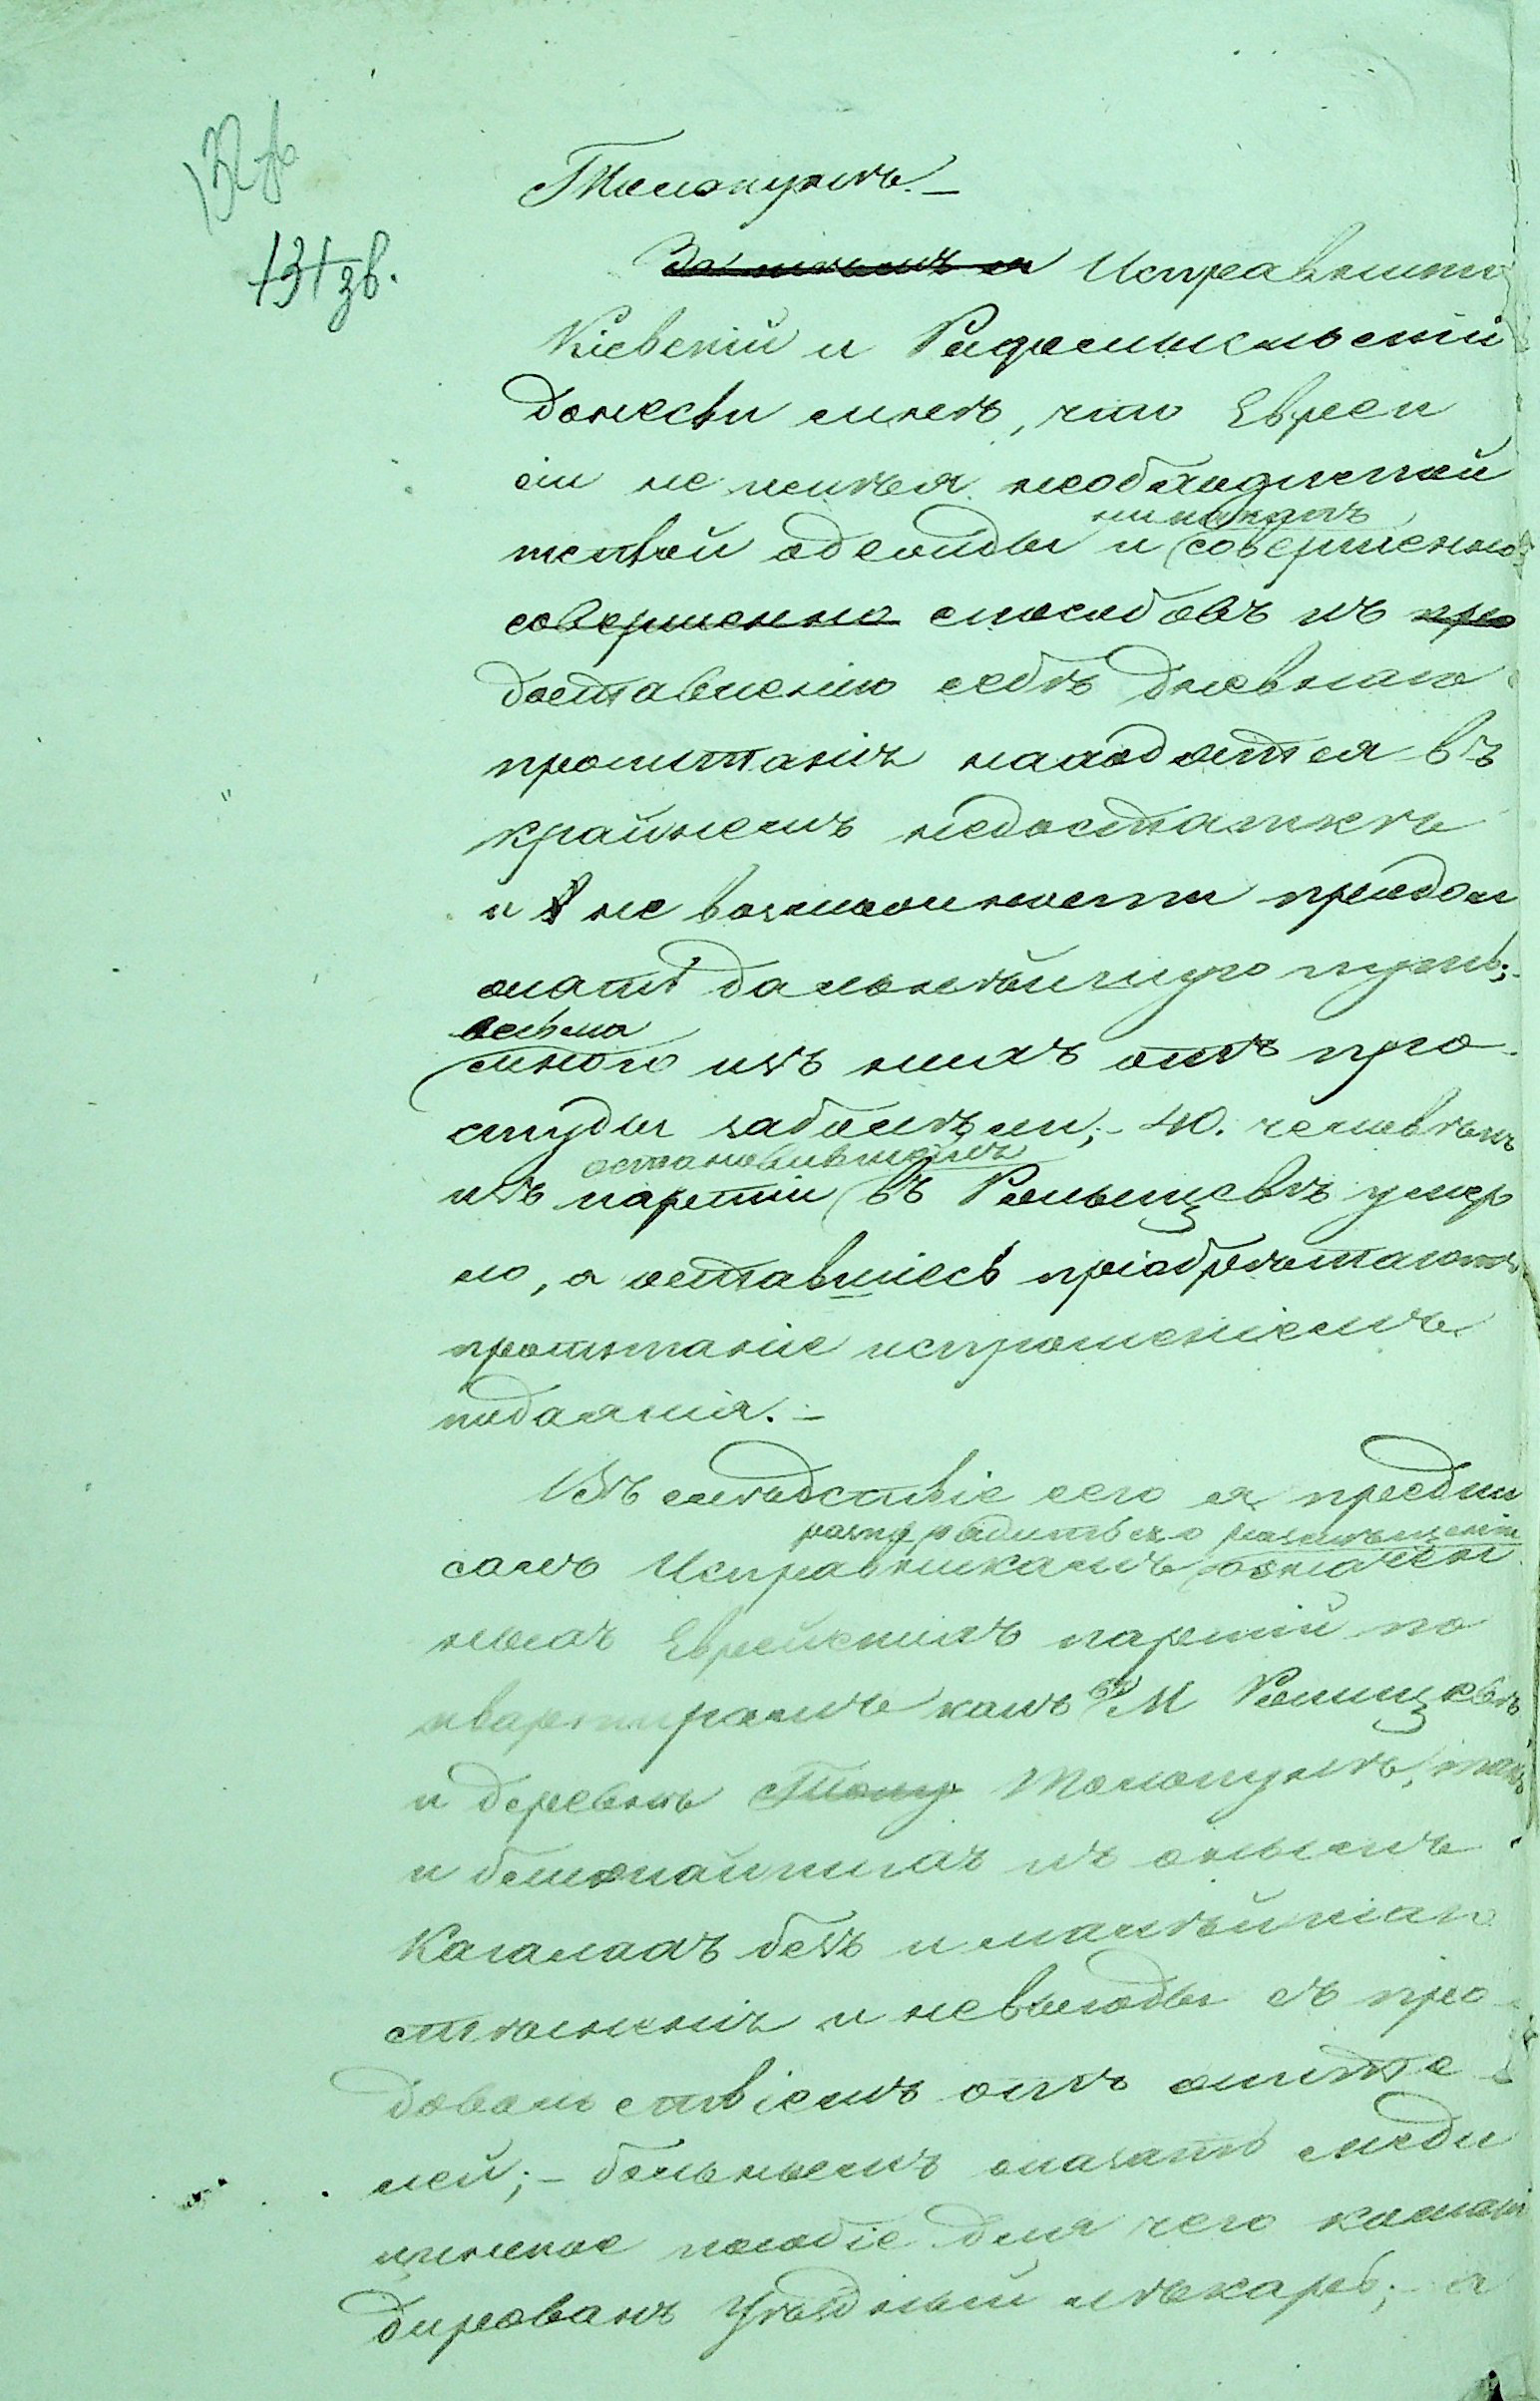 131 зв.
Толокунь.–
Исправники
Кіевскій и Радомысльскій
донесли мнѣ, что Евреи
сіи не имѣя необходимой
никакихъ
теплой одежды и совершенно
совершенно способовъ къ про
доставленію себѣ дневнаго
пропитанія находятся въ
крайнемъ недостаткѣ
и не возможности преодол
ѣать дальнѣйшую путь;–
весьма
много изъ нихъ отъ про-
студы заболѣли;– 40. человѣкъ
остановившейся
изъ партіи въ Ровыщевѣ умер
ло, а оставшіесь пріобрѣтаютъ
пропитаніе испрошеніемъ
подаянія.–
Въ слѣдствіе сего я предпи
размѣщеніи
салъ Исправникамъ означен
ныхъ Еврейскихъ партій по
квартирамъ какъ въ М
и деревнѣ Толокунѣ, такъ
и ближайшихъ къ онымъ
Кагалахъ безъ и малѣйшаго
стѣсненія и невыгоды съ про-
довольствіемъ отъ жите-
лей;– больнымъ оказать меди
цинское пособіе для чего коман
дированъ Уѣздный лѣкарь;– и